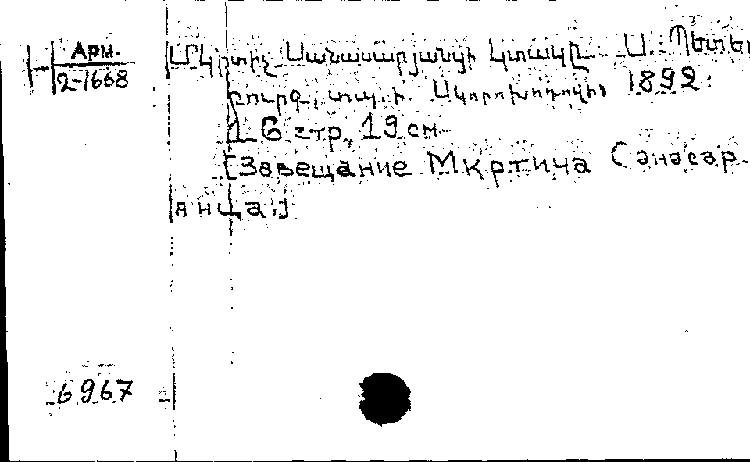 Арм.
2-1668
Մկրտիչ Սանասարյանցի կտակը. Ս. Պետեր
բուրգ, տպ. Ի. Սկորոխոդովի, 1892.
16 стр, 19 см.
[Завещание Мкртича Санасар
янца.]
6967